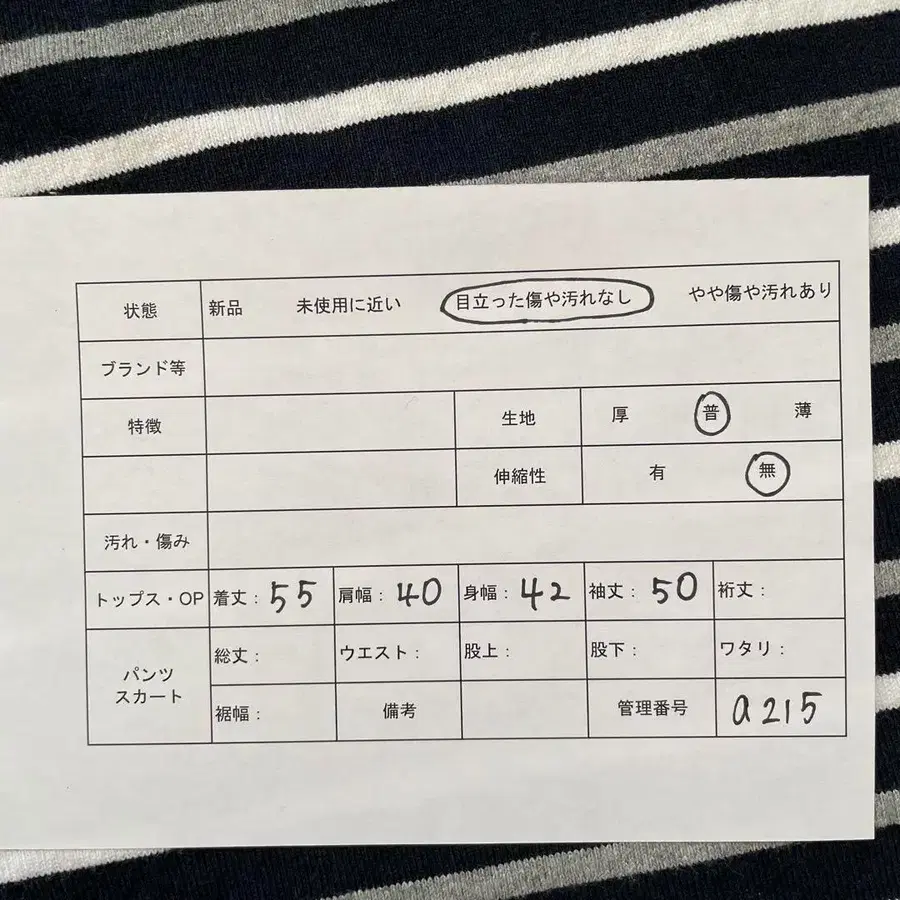 状態 新品 未使用に近い 目立った傷や汚れなし やや傷や汚れあり
ブランド等
特徴 生地 厚 普 薄
伸縮性 有 無
汚れ・傷み
トップス・OP 着丈：55 肩幅：40 身幅：42 袖丈：50 裄丈：
パンツ スカート 総丈： ウエスト： 股上： 股下： ワタリ：
裾幅： 備考 管理番号 a215